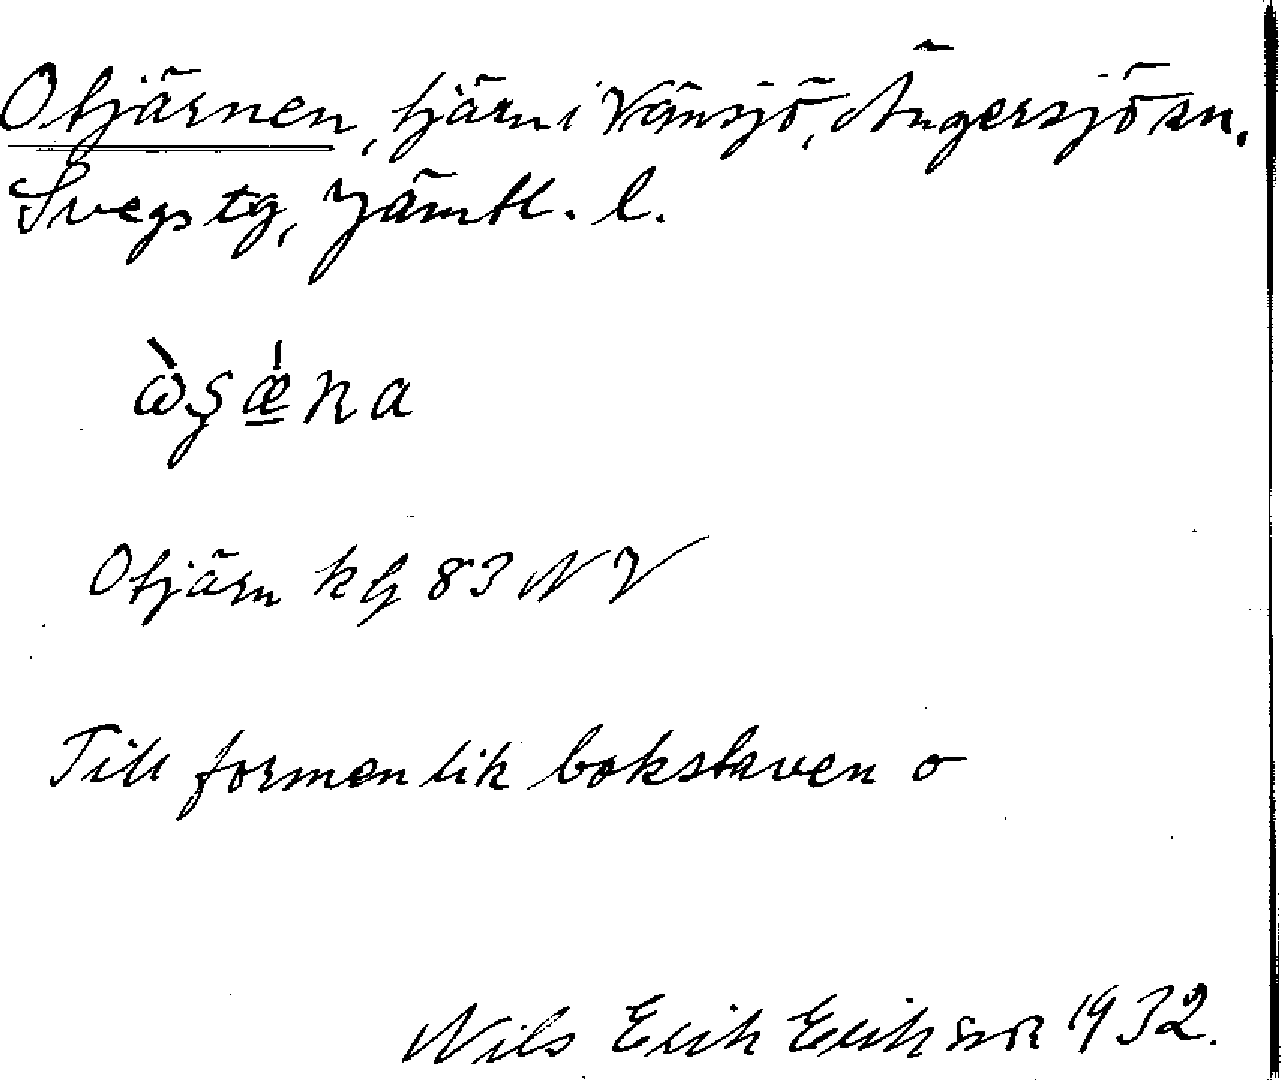 Otjärnen, tjärn i Vänsjö, Ängersjö sn.
Svegs tg, Jämtl. l.
Otjärn kg 83 NV
Till formen lik bokstaven o
Nils Erik Eriksson 1932.